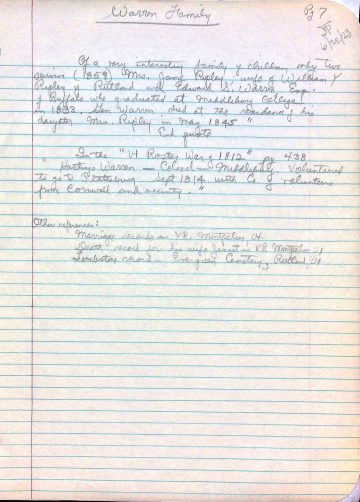 Warren Family
Pg 7
Of a very interesting family of children only two
survive (1859) Mrs. Jane Ripley wife of William Y
Ripley of Rutland and Edward S. Warren Esq.
of Buffalo who graduated at Middlebury College
in 1833. Gen Warren died at the residence of his
daughter Mrs. Ripley in May 1845 "
End quote
In the "Vt Roster War of 1812" pg 438
" Hastings Warren — Colonel — Middlebury. Volunteered
to go to Plattsburg Sept 1814 with Co of volunteers
from Cornwall and vicinity. "
Other references:
Marriage record in VR. Montpelier, Vt
Death record for his wife Janet — VR Montpelier
Tombstone record — Evergreen Cemetery, Rutland Vt